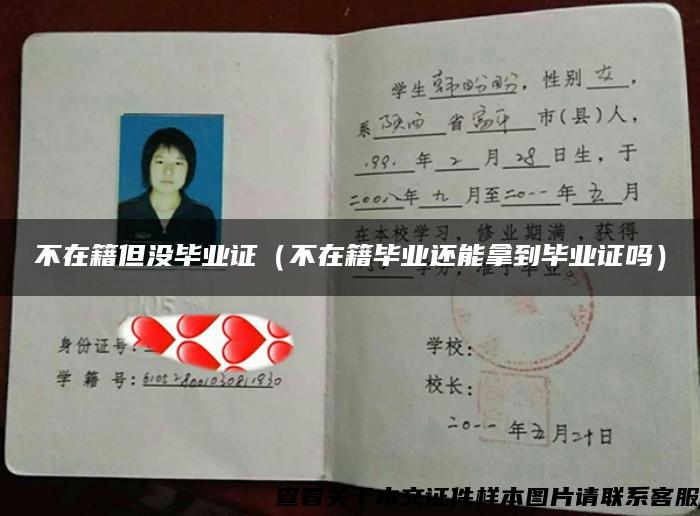 学生韩盼盼，性别女，
系陕西省富平市(县)人，
199.年2月28日生，于
二00八年九月至二0一一年五月
在本校学习，修业期满，获得
学分，准予毕业。
不在籍但没毕业证（不在籍毕业还能拿到毕业证吗）
身份证号:
学籍号:
学校:
校长:
二0一一年五月二十日
查看关于本文证件样本图片请联系客服